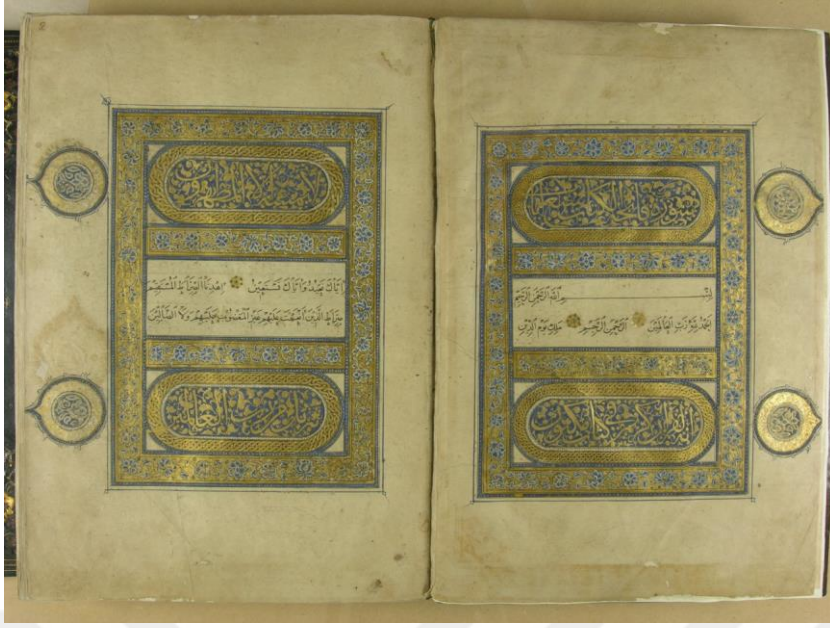 سورة فاتحة الكتاب
بسم الله الرحمن الرحيم
الحمد لله رب العالمين الرحمن الرحيم ملك يوم الدين
إنه لقرآن كريم في كتاب مكنون
لا يمسه إلا المطهرون
إياك نعبد وإياك نستعين اهدنا الصراط المستقيم
صراط الذين أنعمت عليهم غير المغضوب عليهم ولا الضالين
تنزيل من رب العالمين